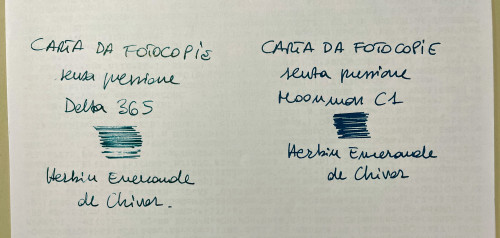 CARTA DA FOTOCOPIE
senza pressione
Delta 365
Herbin Emeraude
de Chivor.
CARTA DA FOTOCOPIE
senza pressione
Moonman C1
Herbin Emeraude
de Chivor